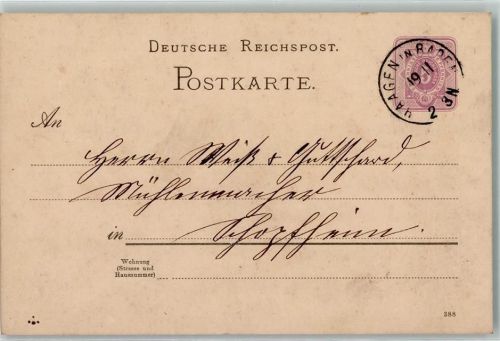 DEUTSCHE REICHSPOST.
POSTKARTE.
HAAGEN in BADEN
19 11
2 3N
An
Herrn Weiß & Guttschard,
Mühlenmacher
in Schopfheim.
Wohnung
(Strasse und
Hausnummer)
388